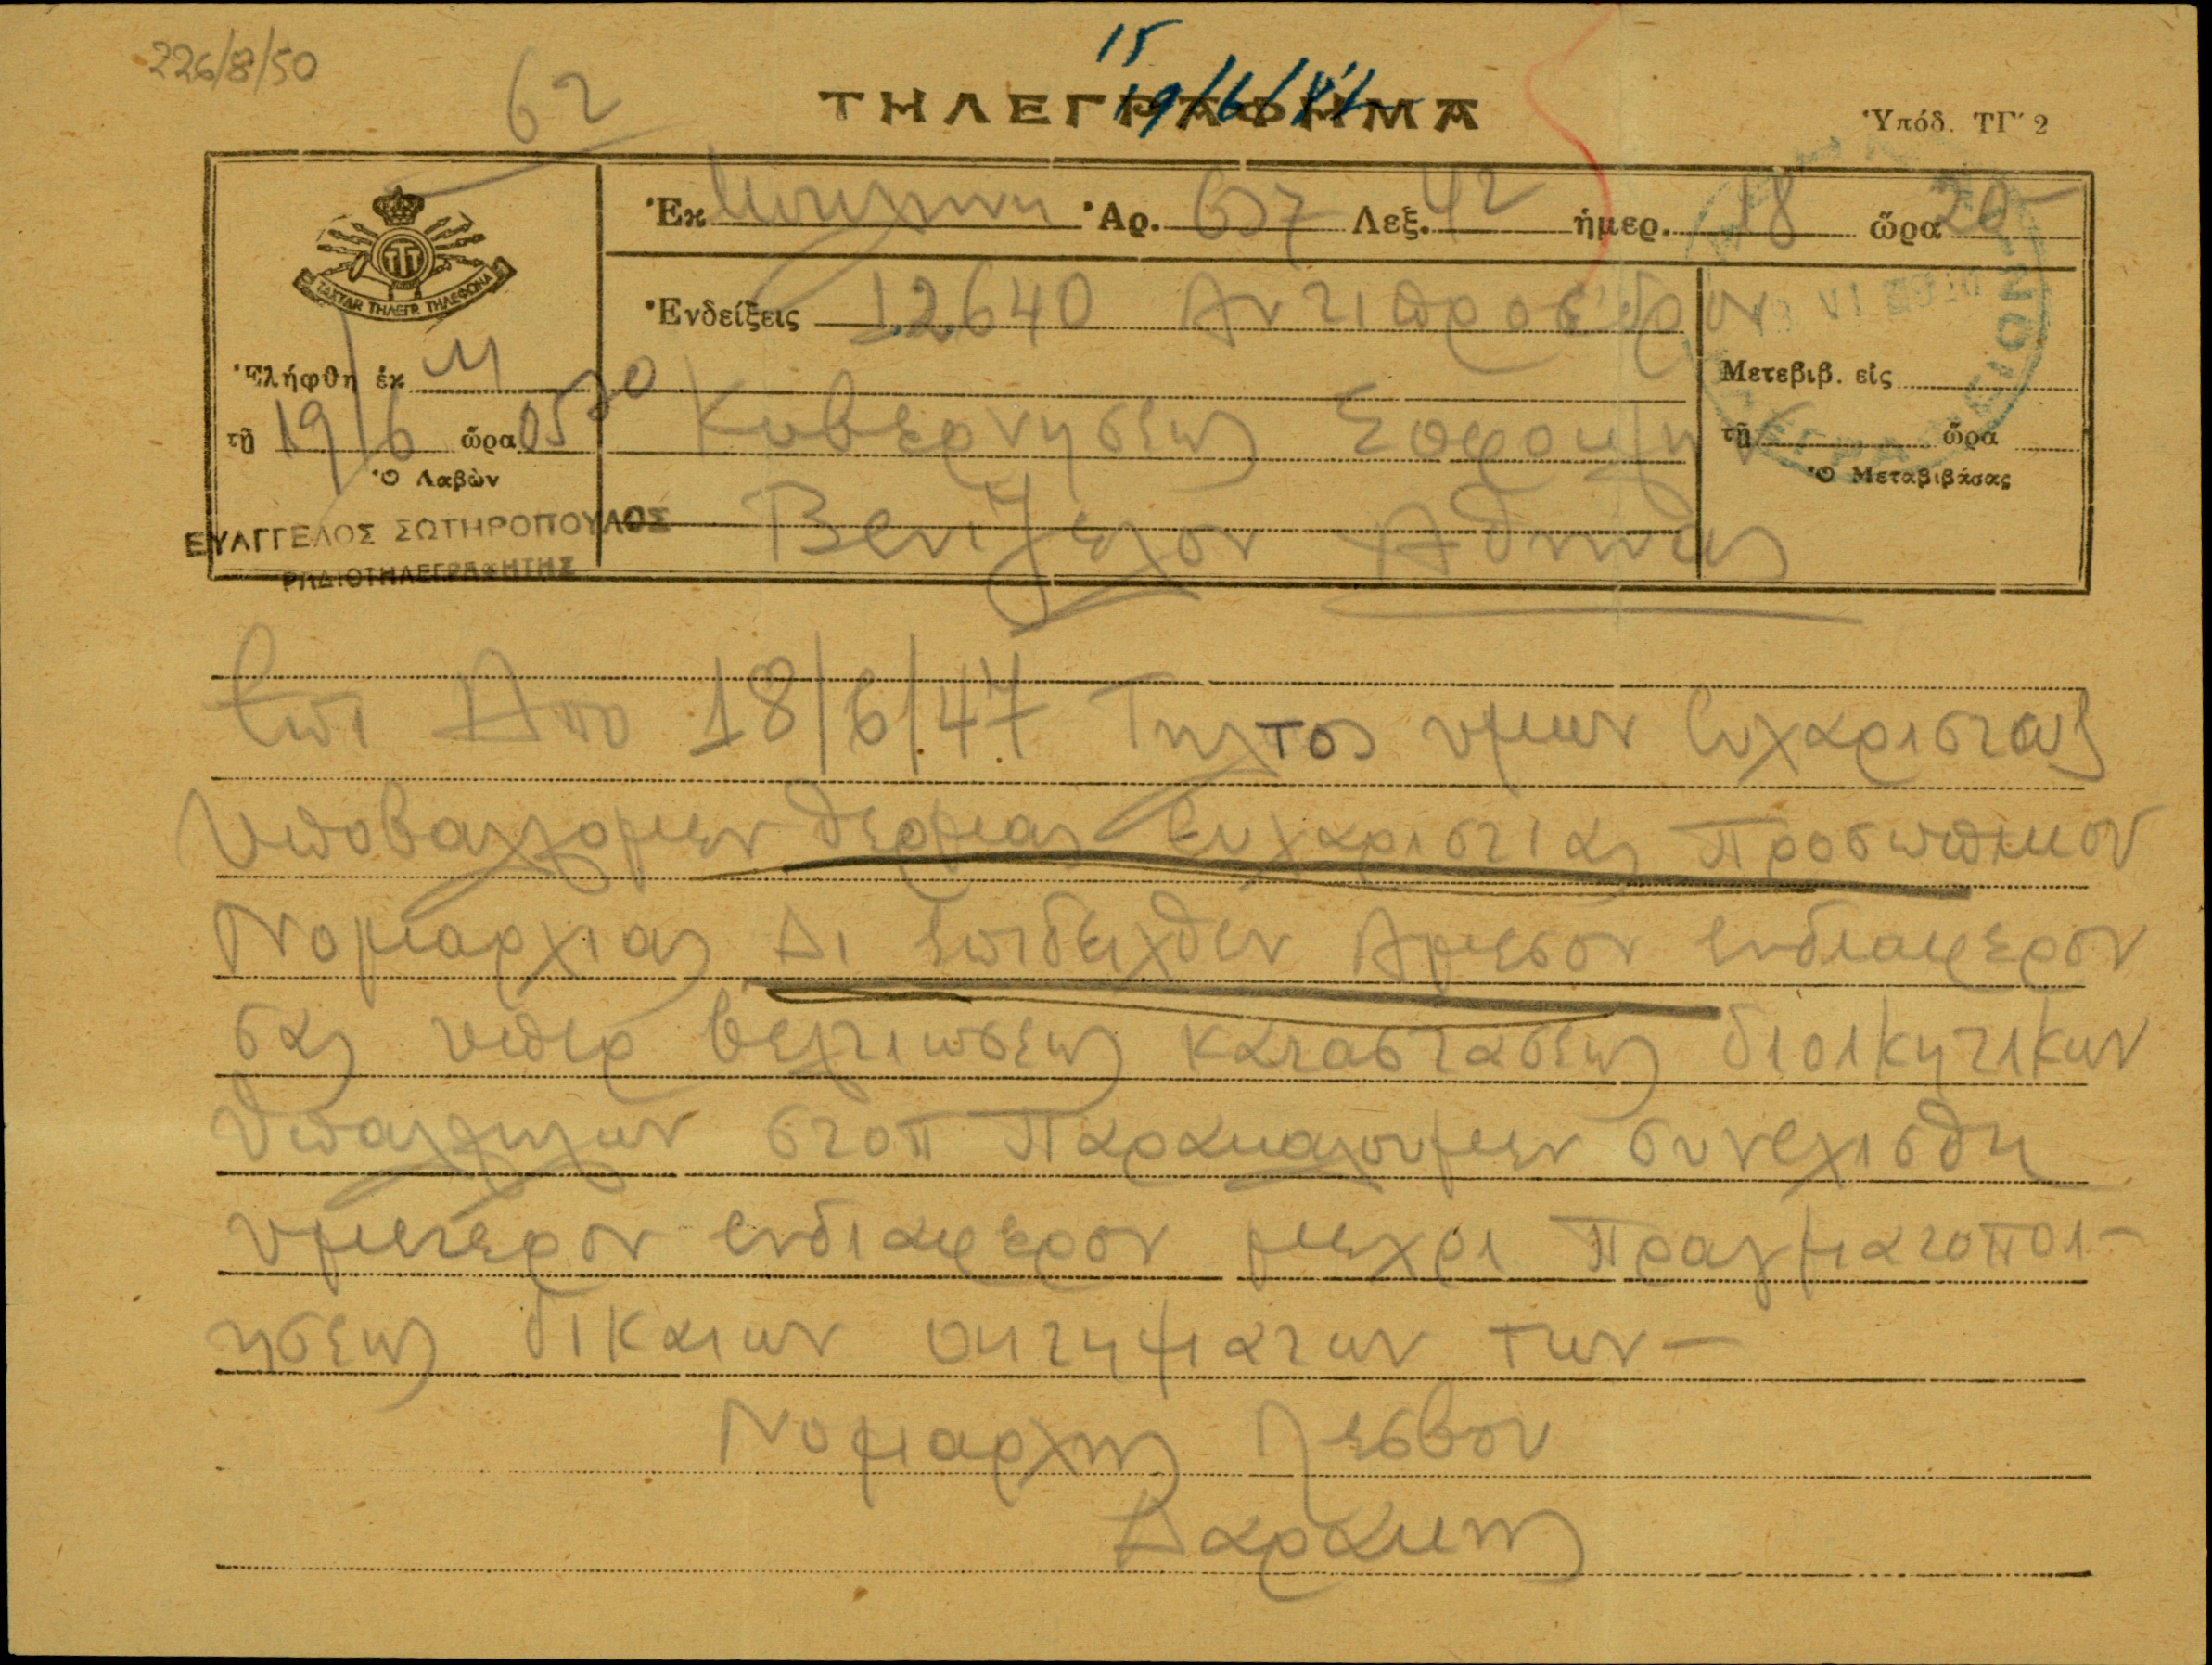 226/8/50
62
15
19/6/47
ΤΗΛΕΓΡΑΦΗΜΑ
Ὑπόδ. ΤΓ΄ 2
Ἐκ Μυτιληνη Ἀρ. 637 Λεξ. 42 ἡμερ. 18 ὥρα 20
ΤΑΧΥΔΡ. ΤΗΛΕΓΡ. ΤΗΛΕΦΩΝΑ
ΤΤΤ
Ἐνδείξεις 12640 Αντιπροεδρον
Ἐλήφθη ἐκ Μ
Μετεβιβ. εἰς
Κυβερνησεως Σοφοκλην
τῇ 19/6 ὥρα 0530
τῇ ὥρα
Ὁ Λαβὼν
Ὁ Μεταβιβάσας
Βενιζελον Αθηνας
ΕΥΑΓΓΕΛΟΣ ΣΩΤΗΡΟΠΟΥΛΟΣ
ΡΑΔΙΟΤΗΛΕΓΡΑΦΗΤΗΣ
Επι Απο 18/6/47 Τηλτος υμων
Υποβαλλομεν θερμας Ευχαριστιας Προσωπικου
Νομαρχιας Δι επιδειχθεν Αμεσον ενδιαφερον
σας υπερ βελτιωσεως καταστασεως διοικητικων
Υπαλληλων στοπ Παρακαλουμεν συνεχισθη
υμετερον ενδιαφερον μεχρι Πραγματοποι-
ησεως δικαιων αιτηματων των-
Νομαρχης Λεσβου
Δαρακης